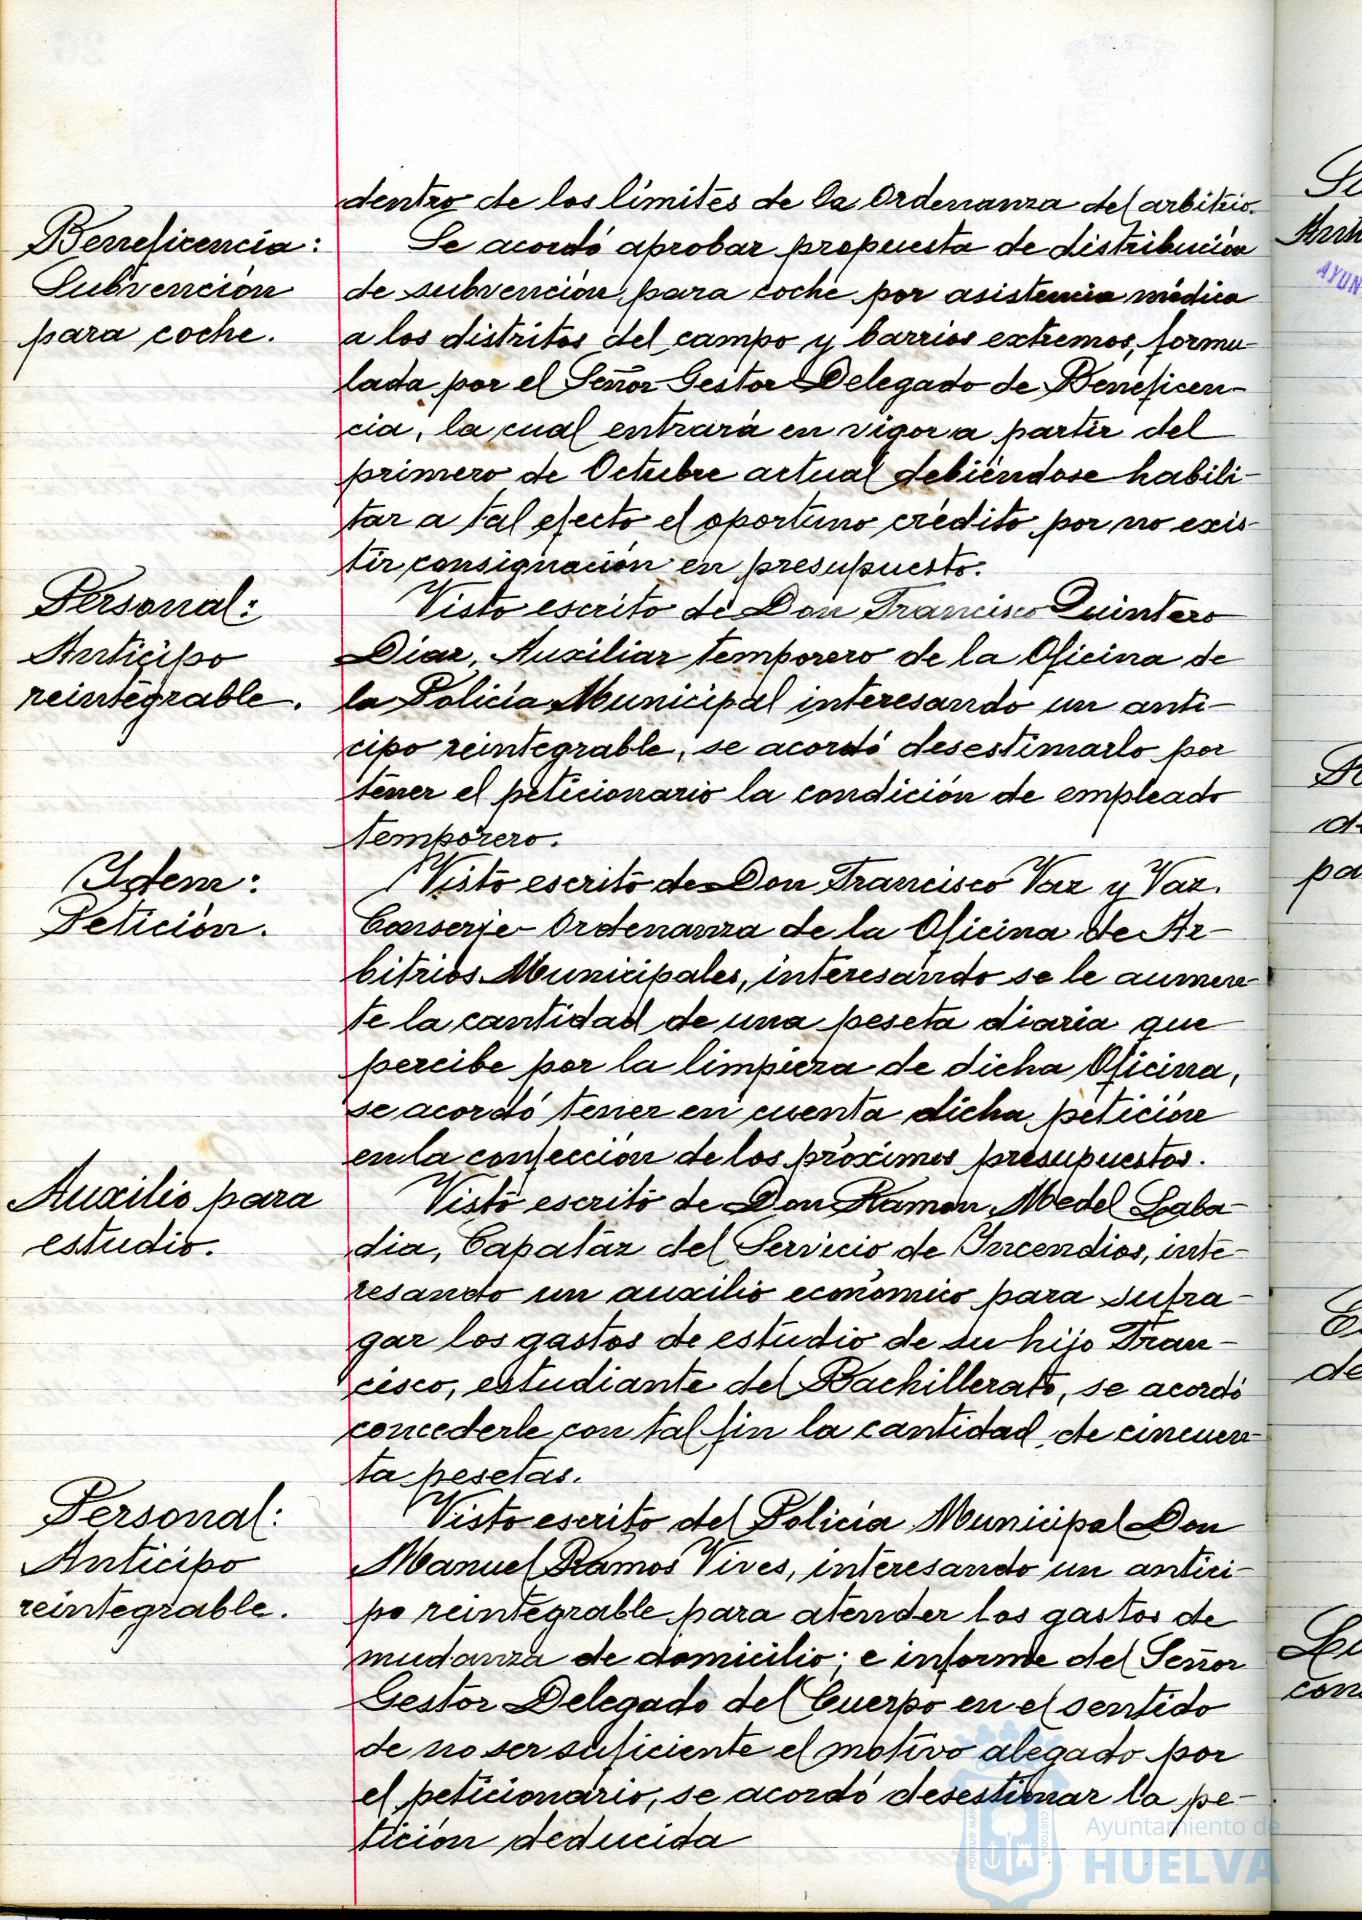 dentro de los límites de la Ordenanza del arbitrio.
Beneficencia:
Subvención
para coche.
Se acordó aprobar propuesta de distribución
de subvención para coche por asistencia médica
a los distritos del campo y barrios extremos, formu-
lada por el Señor Gestor Delegado de Beneficen-
cia, la cual entrará en vigor a partir del
primero de Octubre actual debiéndose habili-
tar a tal efecto el oportuno crédito por no exis-
tir consignación en presupuesto.
Personal:
Anticipo
reintegrable.
Visto escrito de Don Francisco Quintero
Diaz, Auxiliar temporero de la Oficina de
la Policía Municipal interesando un anti-
cipo reintegrable, se acordó desestimarlo por
tener el peticionario la condición de empleado
temporero.
Ydem:
Petición.
Visto escrito de Don Francisco Vaz y Vaz.
Conserje-Ordenanza de la Oficina de Ar-
bitrios Municipales, interesando se le aumen-
te la cantidad de una peseta diaria que
percibe por la limpieza de dicha Oficina,
se acordó tener en cuenta dicha petición
en la confección de los próximos presupuestos.
Auxilio para
estudio.
Visto escrito de Don Ramon Medel Laba-
dia, Capatáz del Servicio de Yncendios, inte-
resando un auxilio económico para sufra-
gar los gastos de estudio de su hijo Fran-
cisco, estudiante del Bachillerato, se acordó
concederle con tal fin la cantidad de cincuen-
ta pesetas.
Personal:
Anticipo
reintegrable.
Visto escrito del Policía Municipal Don
Manuel Ramos Vives, interesando un antici-
po reintegrable para atender los gastos de
mudanza de domicilio; e informe del Señor
Gestor Delegado del Cuerpo en el sentido
de no ser suficiente el motivo alegado por
el peticionario, se acordó desestimar la pe-
tición deducida
Ayuntamiento de
HUELVA